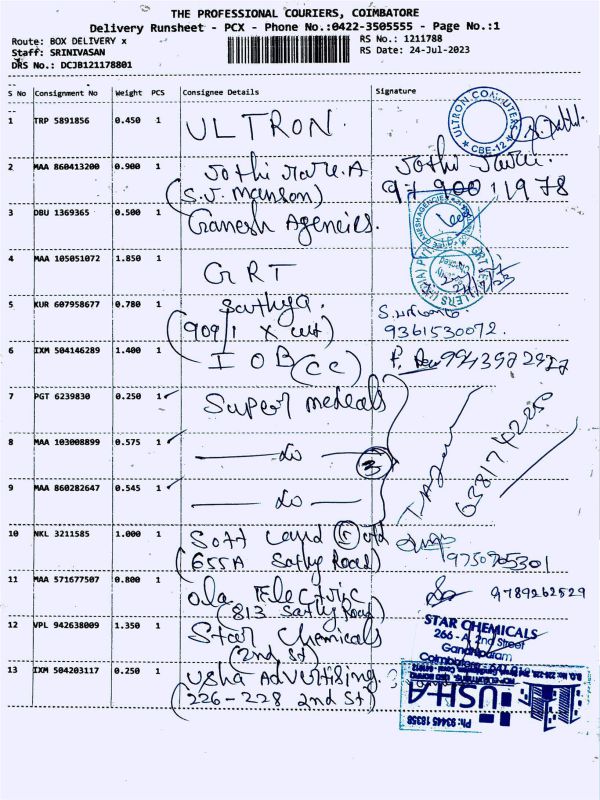 THE PROFESSIONAL COURIERS, COIMBATORE
Delivery Runsheet - PCX - Phone No.:0422-3505555 - Page No.:1
Route: BOX DELIVERY x
RS No.: 1211788
Staff: SRINIVASAN
RS Date: 24-Jul-2023
DRS No.: DCJB121178801
S No Consignment No Weight PCS Consignee Details Signature
1 TRP 5891856 0.450 1 ULTRON.
ULTRON COMPUTERS
CBE-12
2 MAA 860413200 0.900 1 Jothi A Jothi
(S.J. Manson) 97 900 11978
3 DBU 1369365 0.500 1 Ganesh Agencies.
GANESH AGENCIES
4 MAA 105051072 1.850 1 GRT
GRT JEWELLERS (INDIA) PVT
5 KUR 607958677 0.780 1 Sathya.
(909/1 X cut) 9361530072.
6 IXM 504146289 1.400 1 IOB (CC) P.
7 PGT 6239830 0.250 1 Super medicals
8 MAA 103008899 0.575 1 — do — 3
9 MAA 860282647 0.545 1 — do —
6381742250
10 NKL 3211585 1.000 1 Soft Land
(655A Sathy Road) 9750905301
11 MAA 571677507 0.800 1 ola Electric 9789262529
(813 Sathy Road)
12 VPL 942638009 1.350 1 Star Chemicals
(2nd St)
STAR CHEMICALS
266 - A, 2nd Street
Gandhipuram
13 IXM 504203117 0.250 1 Usha Advertising
(226-228 2nd St)
USHA
Ph: 93445 18358